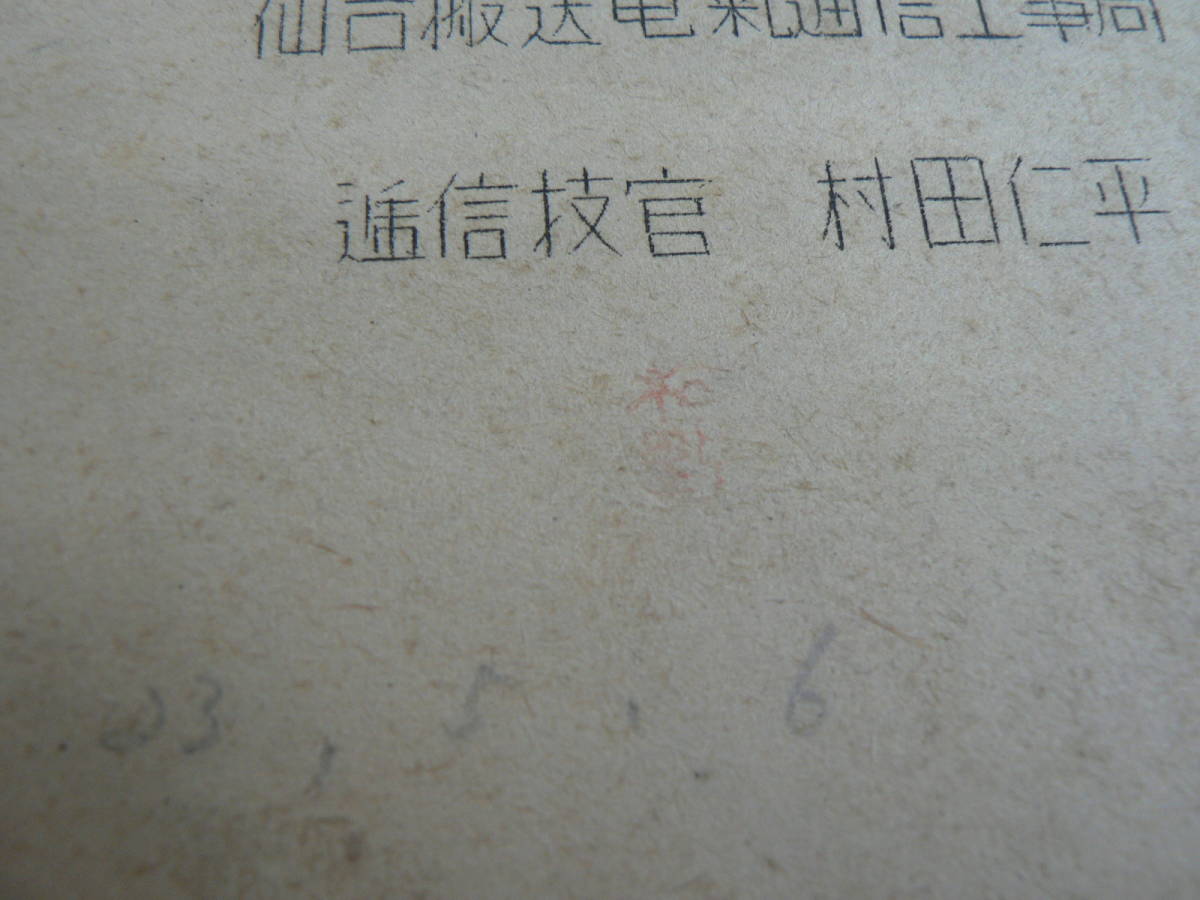 仙台搬送電氣通信工事局
逓信技官 村田仁平
23, 5, 6